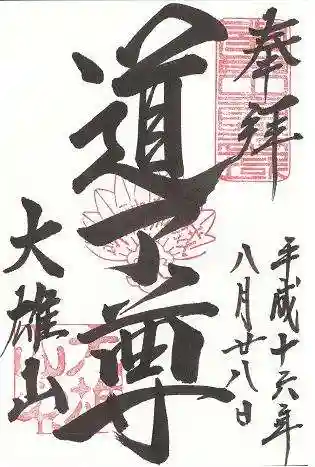 奉拝
平成十六年
八月廿八日
道了尊
大雄山